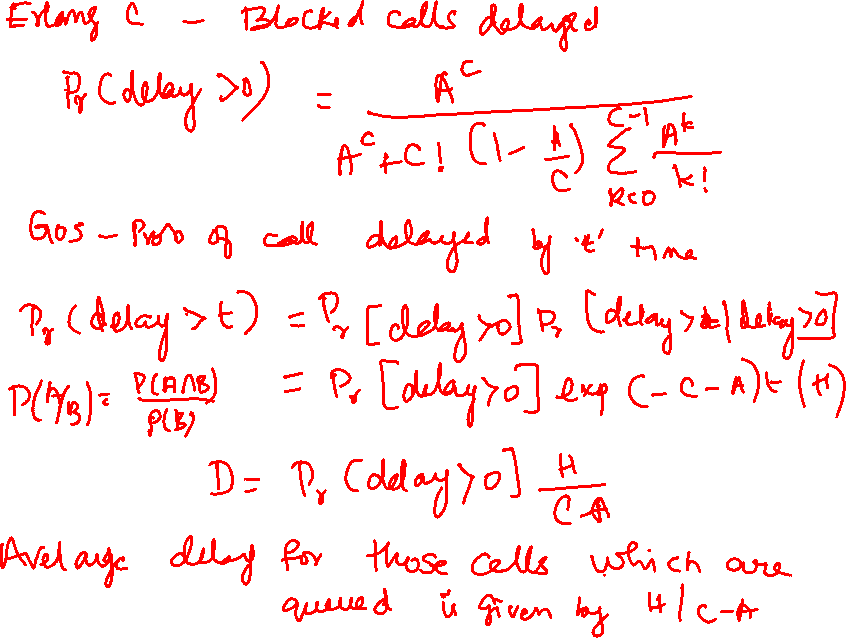 Erlang C - Blocked calls delayed
Pr (delay >0) = A^C / (A^C + C! (1 - A/C) Σ_{k=0}^{C-1} A^k/k!)
GOS - Prob of call delayed by 't' time
Pr (delay > t) = Pr [delay >0] Pr [delay > t | delay >0]
P(A/B) = P(A∩B)/P(B) = Pr [delay >0] exp (-C-A)t (H)
D = Pr (delay >0] H/(C-A)
Average delay for those calls which are
queued is given by H/C-A